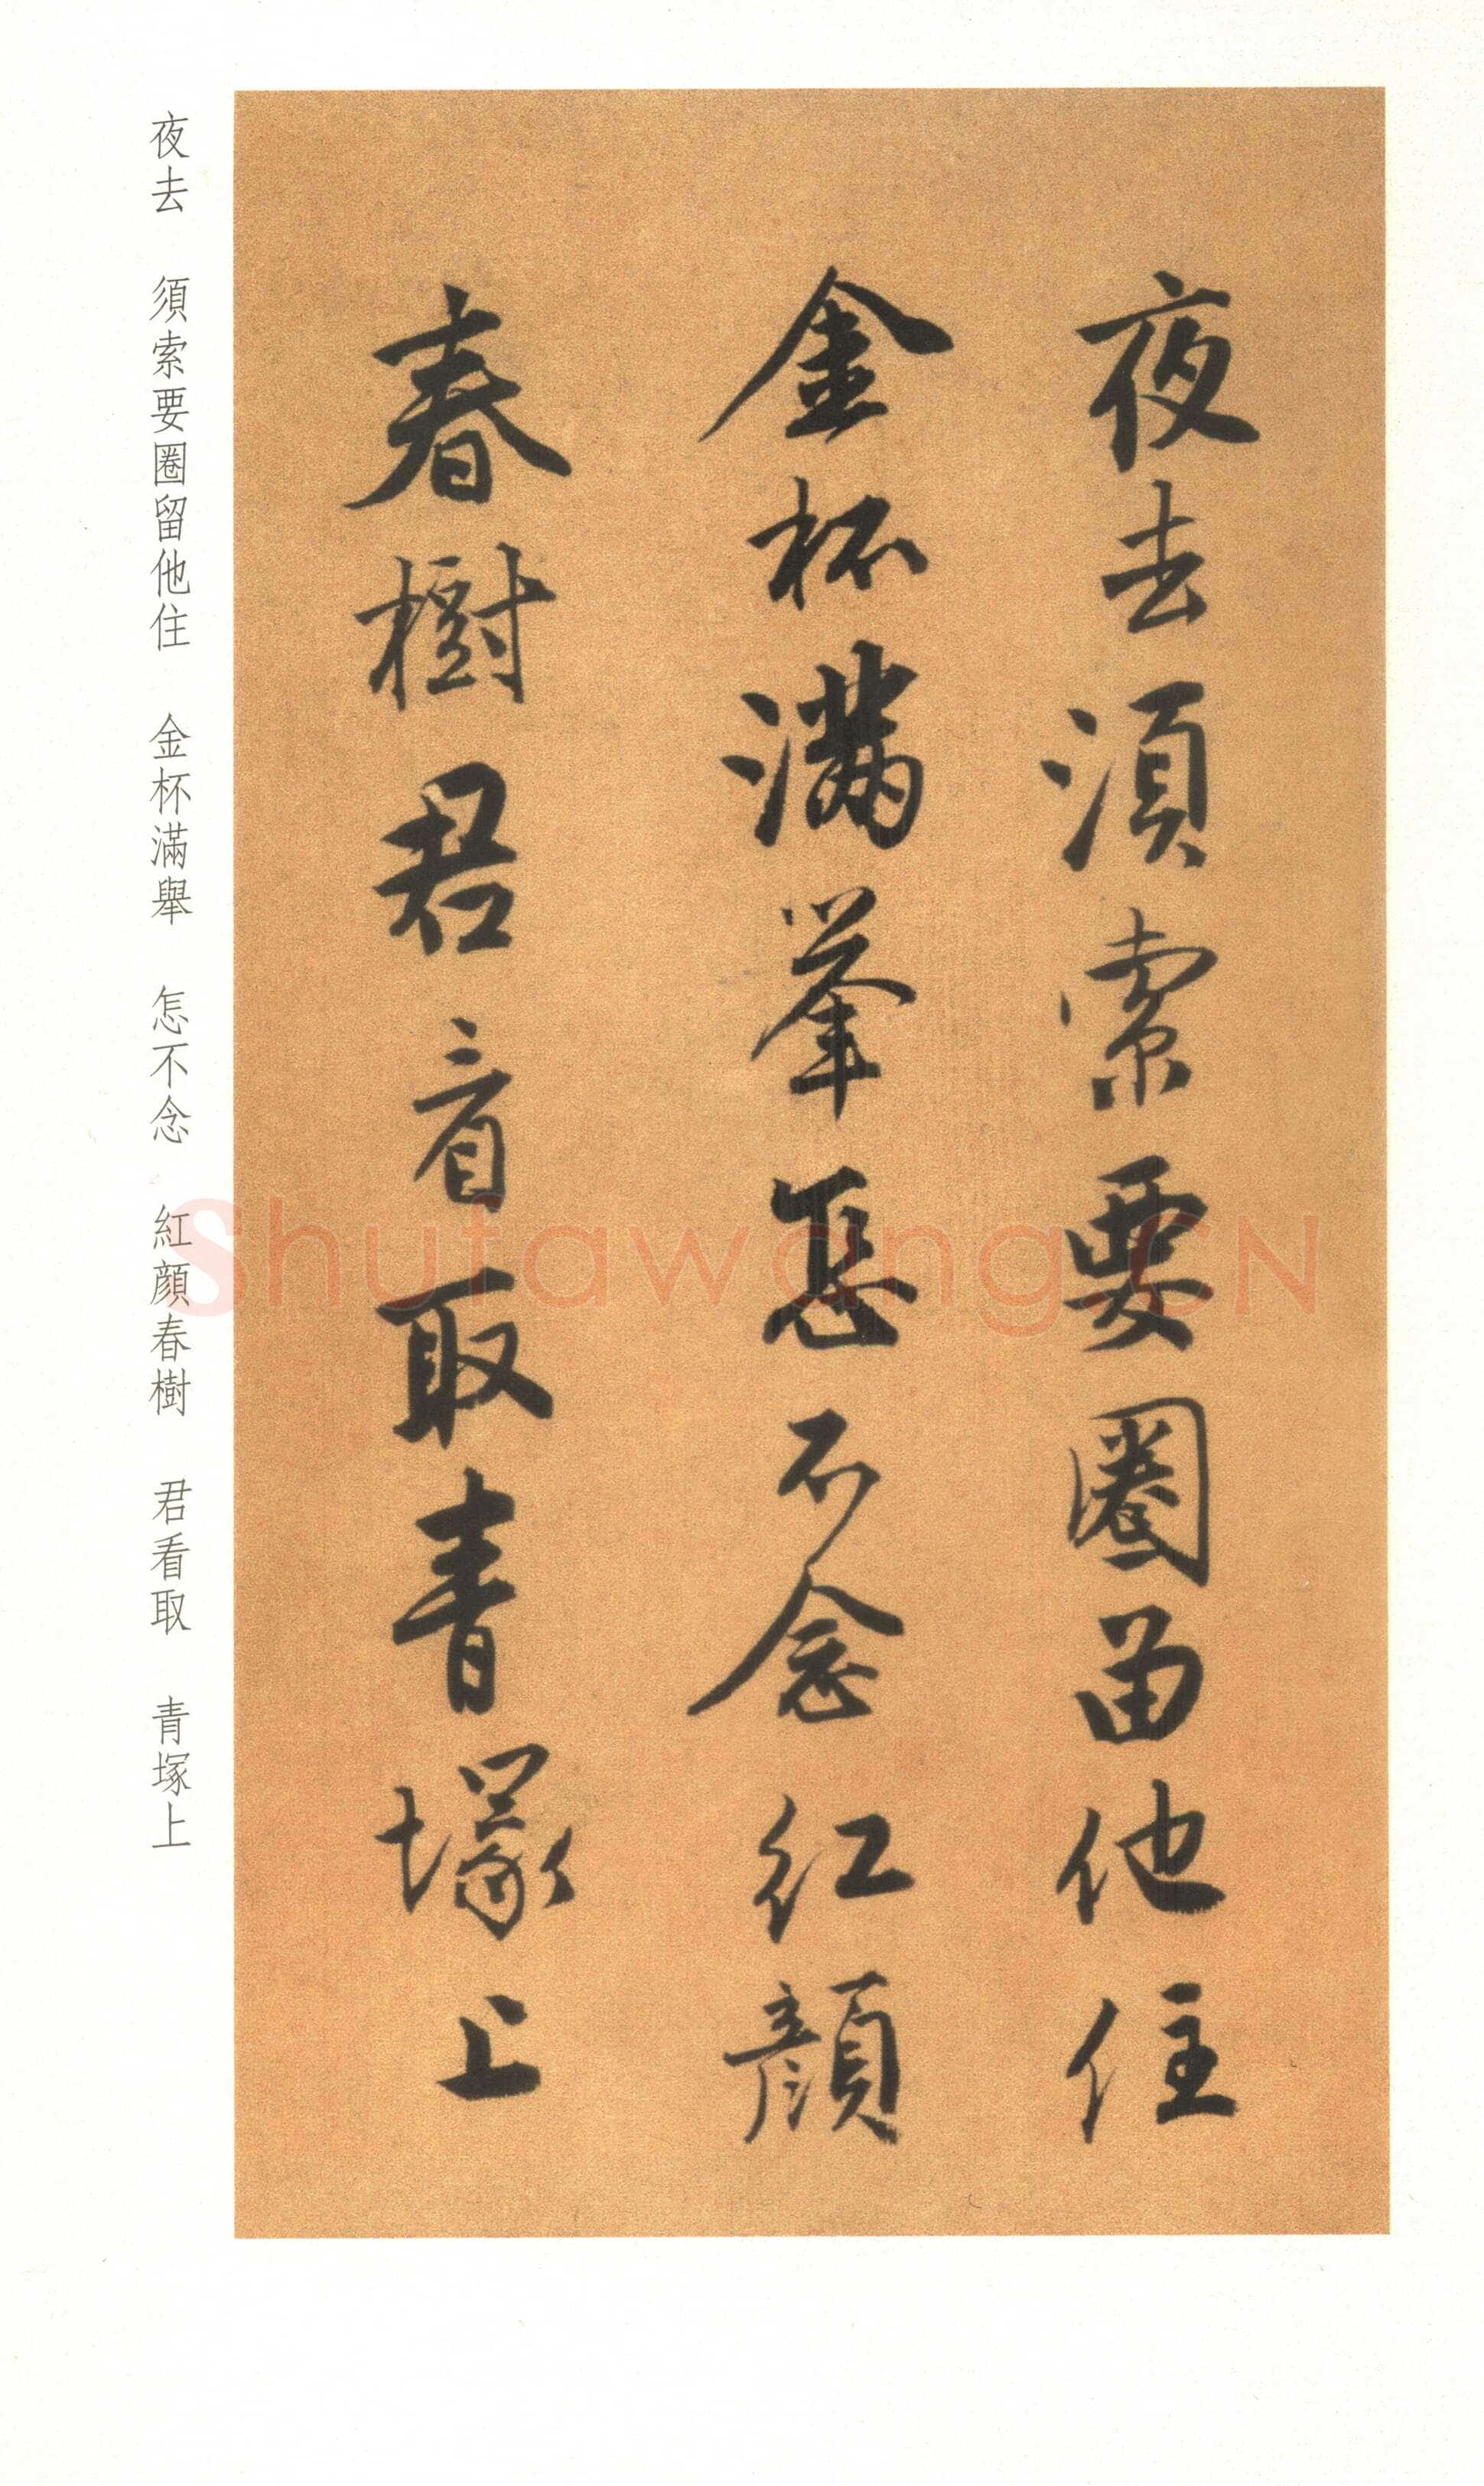 夜去須索要圈留他住
金杯滿舉怎不念紅顔
春樹君看取青塚上
夜去　須索要圈留他住　金杯滿舉　怎不念　紅顔春樹　君看取　青塚上
Shufawang.CN